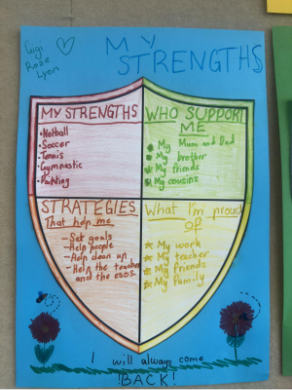 Gigi
Rose
Lyon
MY
STRENGTHS
MY STRENGTHS
• Netball
• Soccer
• Tennis
• Gymnastic
• Painting
WHO SUPPORT
ME
My Mum and Dad
My brother
My friends
My cousins
STRATEGIES
That help me
– Set goals
– Help people
– Help clean up
– Help the teacher
and the ESOs.
What I'm proud
OF
My work
My teacher
My friends
My family
I will always come
!BACK!